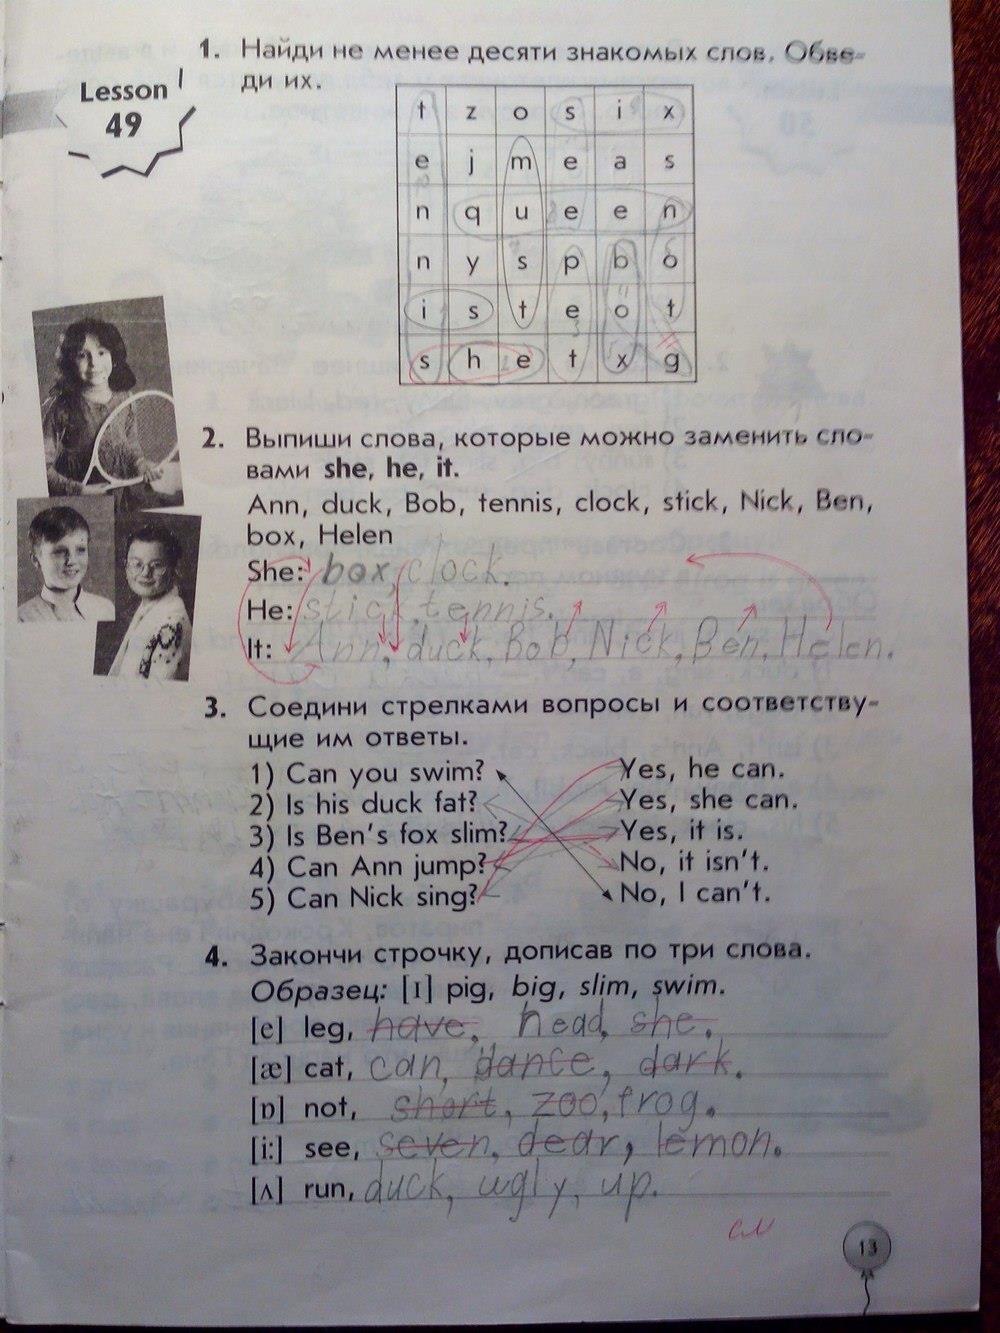 Lesson
49
1. Найди не менее десяти знакомых слов. Обве-
ди их.
t z o s i x
e j m e a s
n q u e e n
n y s p b o
i s t e o t
s h e t x g
2. Выпиши слова, которые можно заменить сло-
вами she, he, it.
Ann, duck, Bob, tennis, clock, stick, Nick, Ben,
box, Helen
She: box, clock.
He: stick, tennis.
It: Ann, duck, Bob, Nick, Ben, Helen.
3. Соедини стрелками вопросы и соответству-
щие им ответы.
1) Can you swim? Yes, he can.
2) Is his duck fat? Yes, she can.
3) Is Ben's fox slim? Yes, it is.
4) Can Ann jump? No, it isn't.
5) Can Nick sing? No, I can't.
4. Закончи строчку, дописав по три слова.
Образец: [ɪ] pig, big, slim, swim.
[e] leg, have, head, she.
[æ] cat, can, dance, dark.
[ɒ] not, short, zoo, frog.
[i:] see, seven, dear, lemon.
[ʌ] run, duck, ugly, up.
см
13